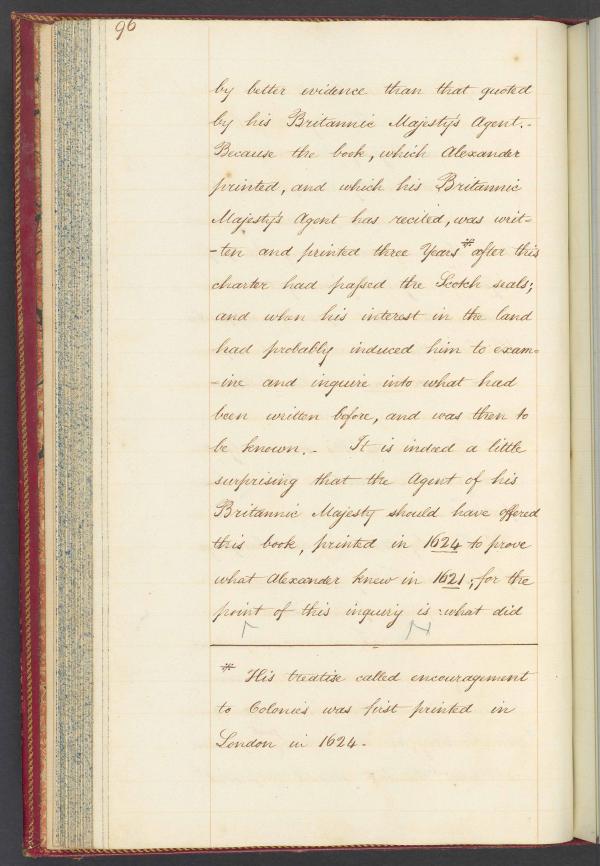 96
by better evidence than that quoted
by his Britannic Majesty's Agent.-
Because the book, which Alexander
printed, and which his Britannic
Majesty's Agent has recited, was writ-
-ten and printed three Years * after this
charter had paſsed the Scotch seals;
and when his interest in the land
had probably induced him to exam-
-ine and inquire into what had
been written before, and was then to
be known.- It is indeed a little
surprising that the Agent of his
Britannic Majesty should have offered
this book, printed in 1624 to prove
what Alexander knew in 1621; for the
point of this inquiry is what did
* His treatise called encouragement
to Colonies was first printed in
London in 1624.